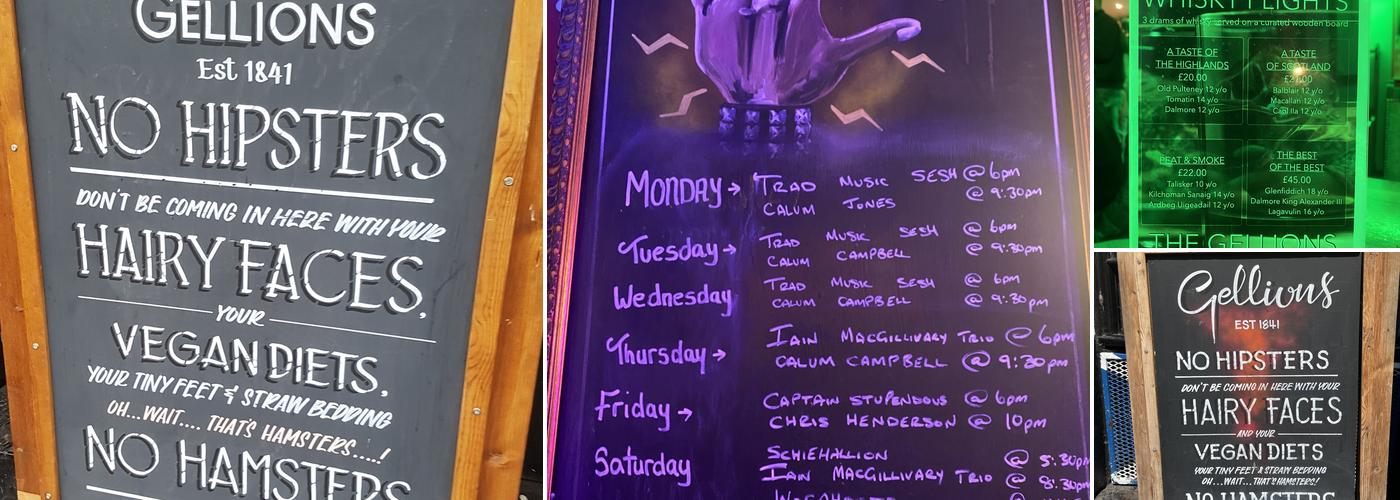 GELLIONS
Est 1841
NO HIPSTERS
DON'T BE COMING IN HERE WITH YOUR
HAIRY FACES,
YOUR
VEGAN DIETS,
YOUR TINY FEET & STRAW BEDDING
OH...WAIT.... THAT'S HAMSTERS....!
NO HAMSTERS
MONDAY → TRAD MUSIC SESH @ 6pm
CALUM JONES @ 9:30pm
Tuesday → TRAD MUSIC SESH @ 6pm
CALUM CAMPBELL @ 9:30pm
Wednesday TRAD MUSIC SESH @ 6pm
CALUM CAMPBELL @ 9:30pm
Thursday → IAIN MACGILLIVARY TRIO @ 6pm
CALUM CAMPBELL @ 9:30pm
Friday → CAPTAIN STUPENDOUS @ 6pm
CHRIS HENDERSON @ 10pm
Saturday SCHIEHALLION @ 5:30pm
IAIN MACGILLIVARY TRIO @ 8:30pm
WHISKY FLIGHTS
3 drams of whisky served on a curated wooden board
A TASTE OF
THE HIGHLANDS
£20.00
Old Pulteney 12 y/o
Tomatin 14 y/o
Dalmore 12 y/o
A TASTE
OF SCOTLAND
Balblair 12 y/o
Macallan 12 y/o
Caol Ila 12 y/o
PEAT & SMOKE
£22.00
Talisker 10 y/o
Kilchoman Sanaig 14 y/o
Ardbeg Uigeadail 12 y/o
THE BEST
OF THE BEST
£45.00
Glenfiddich 18 y/o
Dalmore King Alexander III
Lagavulin 16 y/o
THE GELLIONS
Gellions
EST 1841
NO HIPSTERS
DON'T BE COMING IN HERE WITH YOUR
HAIRY FACES
AND YOUR
VEGAN DIETS
YOUR TINY FEET & STRAW BEDDING
OH...WAIT...THAT'S HAMSTERS!
NO HAMSTERS